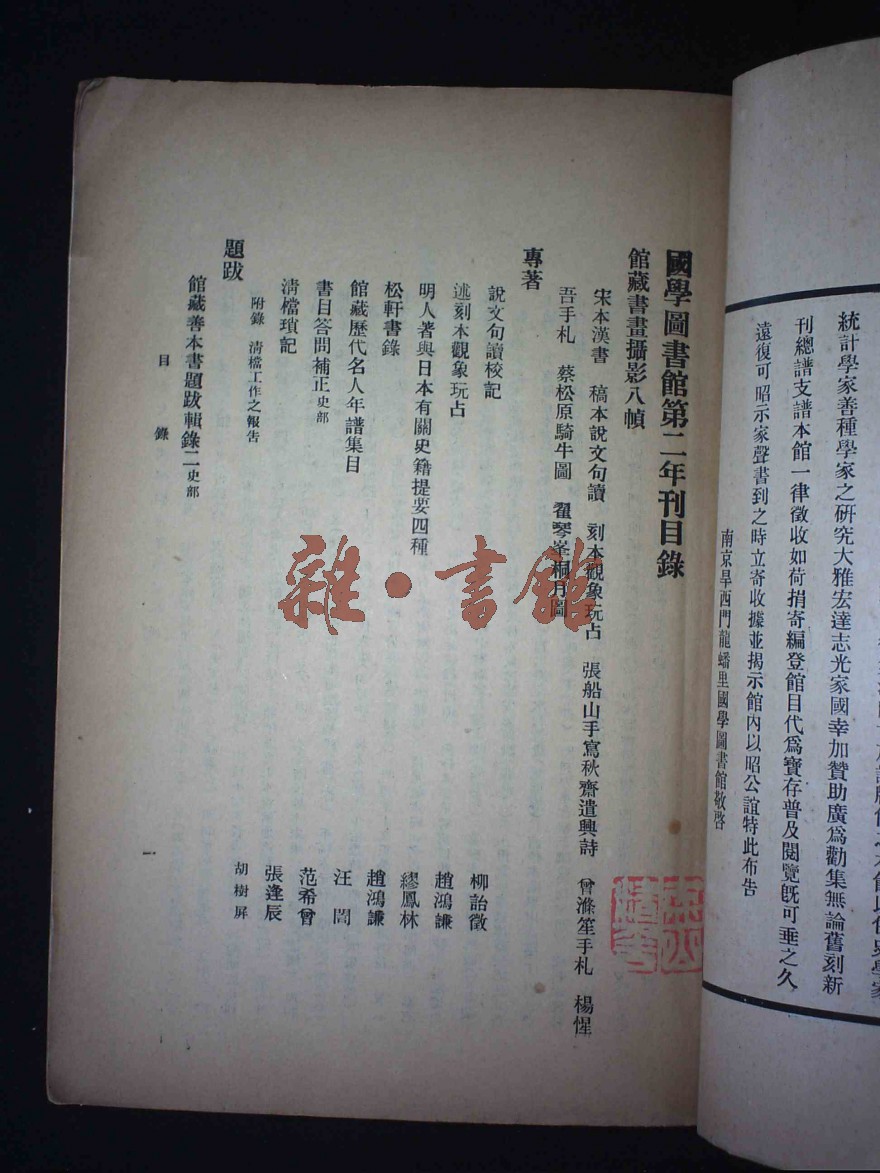 統計學家善種學家之硏究大雅宏達志光家國幸加贊助廣爲勸集無論舊刻新
刊總譜支譜本館一律徵收如荷捐寄編登館目代爲寳存普及閱覽旣可垂之久
遠復可昭示家聲書到之時立寄收據並揭示館內以昭公誼特此布告
南京旱西門龍蟠里國學圖書館敬啓
國學圖書館第二年刊目錄
館藏書畫攝影八幀
宋本漢書 稿本說文句讀 刻本觀象玩占 張船山手寫秋齋遣興詩 曾滌笙手札 楊惺
吾手札 蔡松原騎牛圖 翟琴峯桐月圖
專著
說文句讀校記 柳詒徵
述刻本觀象玩占 趙鴻謙
明人著與日本有關史籍提要四種 繆鳳林
松軒書錄 趙鴻謙
館藏歷代名人年譜集目 汪誾
書目答問補正史部 范希曾
淸檔瑣記 張逢辰
附錄 淸檔工作之報告 胡樹屛
題跋
館藏善本書題跋輯錄二史部
目 錄 一
雜·書館